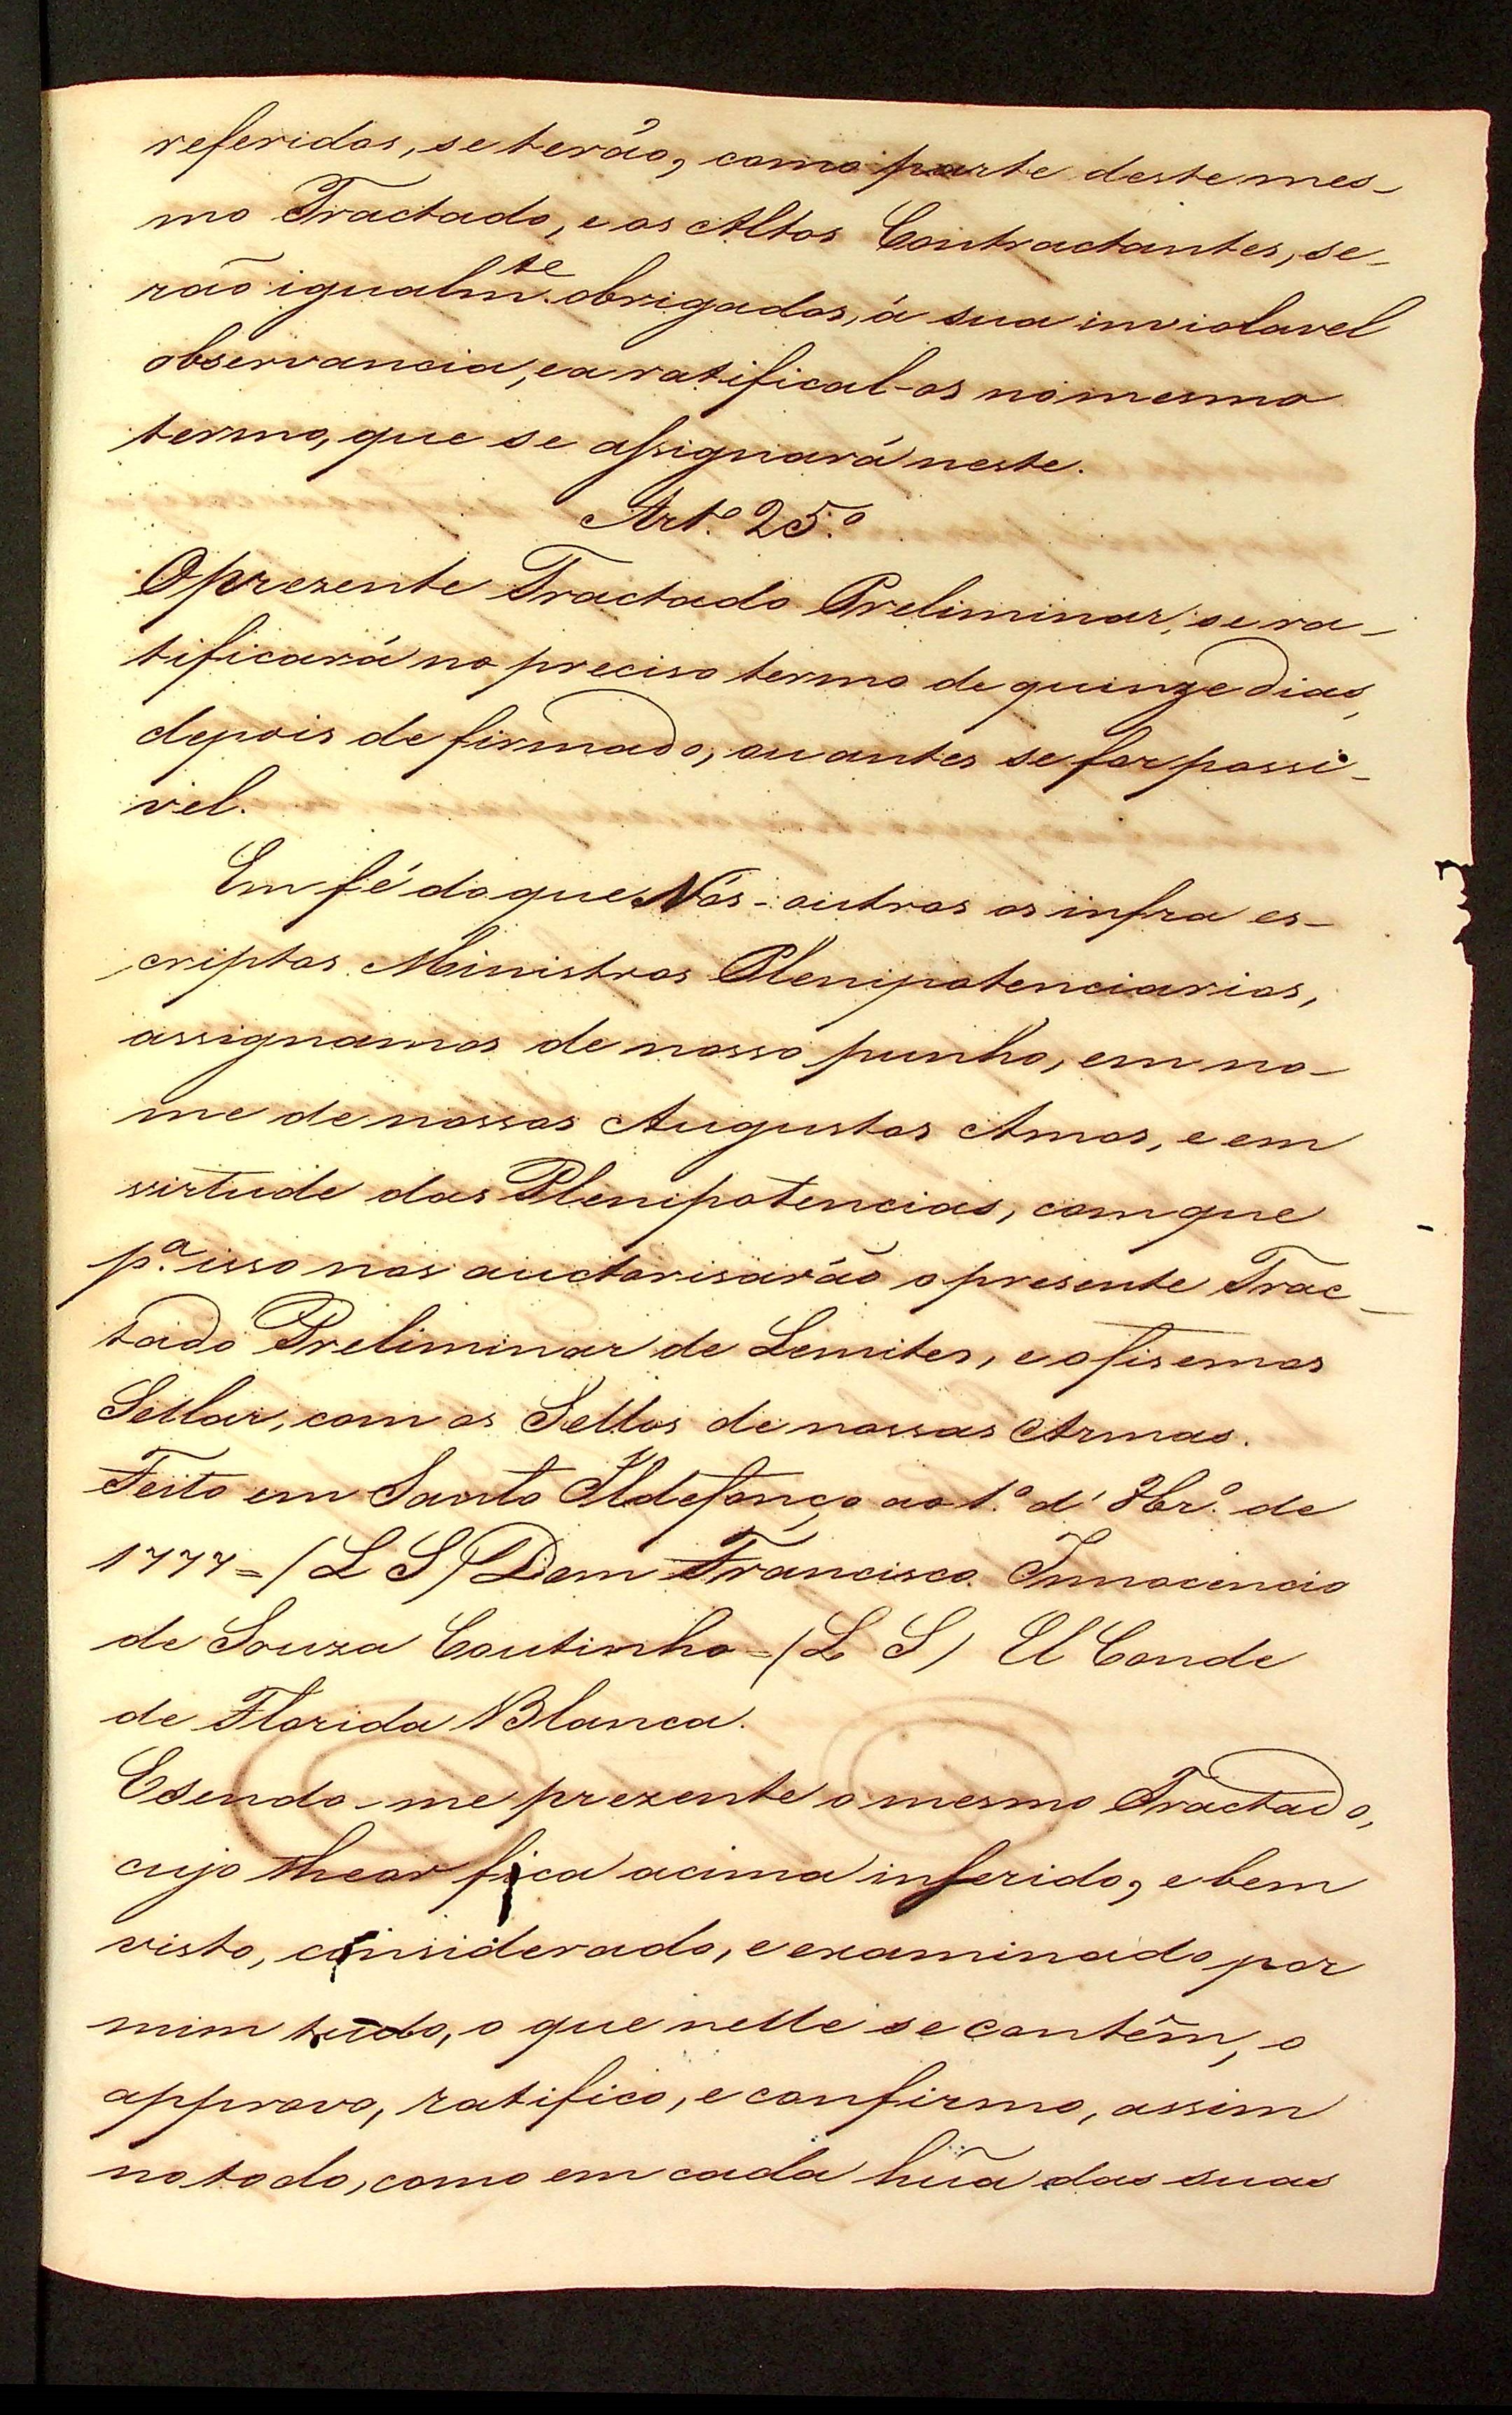 referidos, se terão, como parte deste mes-
mo Tractado, e os Altos Contractantes, se-
rão igualm.te obrigados, á sua inviolavel
observancia, e a ratifical-os no mesmo
termo, que se assignará neste.
Art.o 25.o
O prezente Tractado Preliminar, se ra-
tificará no preciso termo de quinze dias,
depois de firmado, ou antes se for possi-
vel.
Em fé do que Nós-outros os infra es-
criptos Ministros Plenipotenciarios,
assignamos de nosso punho, em no-
me de nossos Augustos Amos, e em
virtude das Plenipotencias, com que
p.a isso nos auctorisarão o presente Trac-
tado Preliminar de Lemites, e o fisemos
Sellar, com os Sellos de nossas Armas.
Feito em Santo Ildefonço ao 1.o d' 8br.o de
1777 = (L S) Dom Francisco Innocencio
de Souza Coutinho = (L S) El Conde
de Florida Blanca.
E sendo-me prezente o mesmo Tractado,
cujo theor fica acima inferido, e bem
visto, considerado, e examinado por
mim tudo, o que nelle se contêm, o
approvo, ratifico, e confirmo, assim
no todo, como em cada hũa das suas